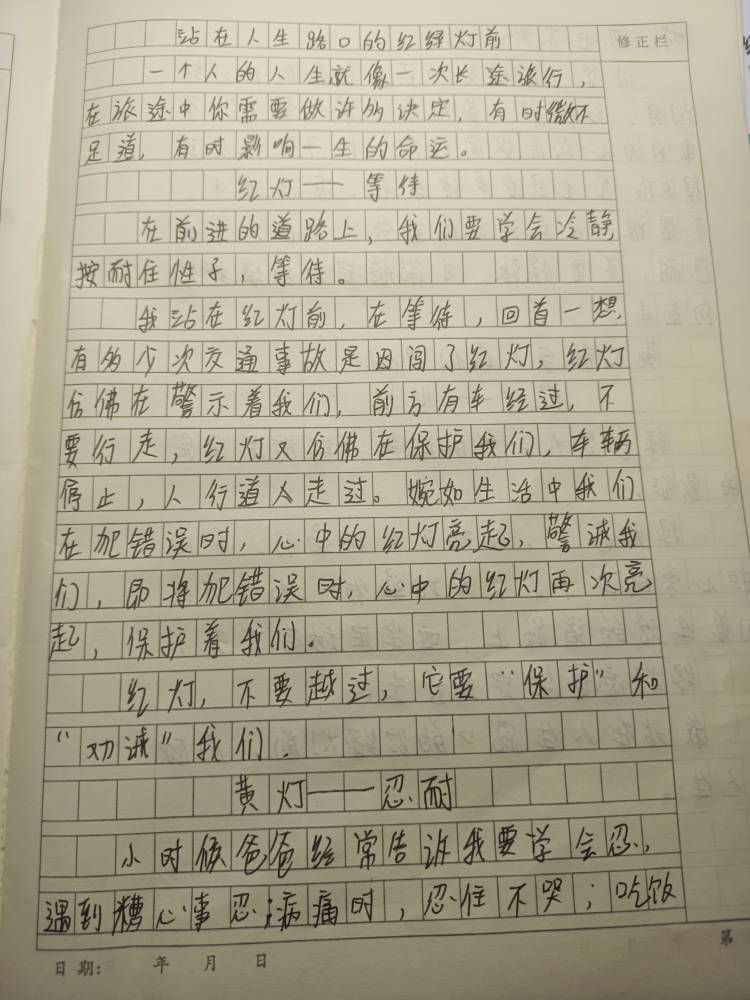 站在人生路口的红绿灯前
修正栏
一个人的人生就像一次长途旅行，
在旅途中你需要做许多决定，有时微不
足道，有时影响一生的命运。
红灯——等待
在前进的道路上，我们要学会冷静，
按耐住性子，等待。
我站在红灯前，在等待，回首一想，
有多少次交通事故是因闯了红灯，红灯
仿佛在警示着我们，前方有车经过，不
要行走，红灯又仿佛在保护我们，车辆
停止，人行道人走过。婉如生活中我们
在犯错误时，心中的红灯亮起，警诫我
们，即将犯错误时，心中的红灯再次亮
起，保护着我们。
红灯，不要越过，它要“保护”和
“劝诫”我们。
黄灯——忍耐
小时候爸爸经常告诉我要学会忍，
遇到糟心事忍；病痛时，忍住不哭；吃饭
日期： 年 月 日
第